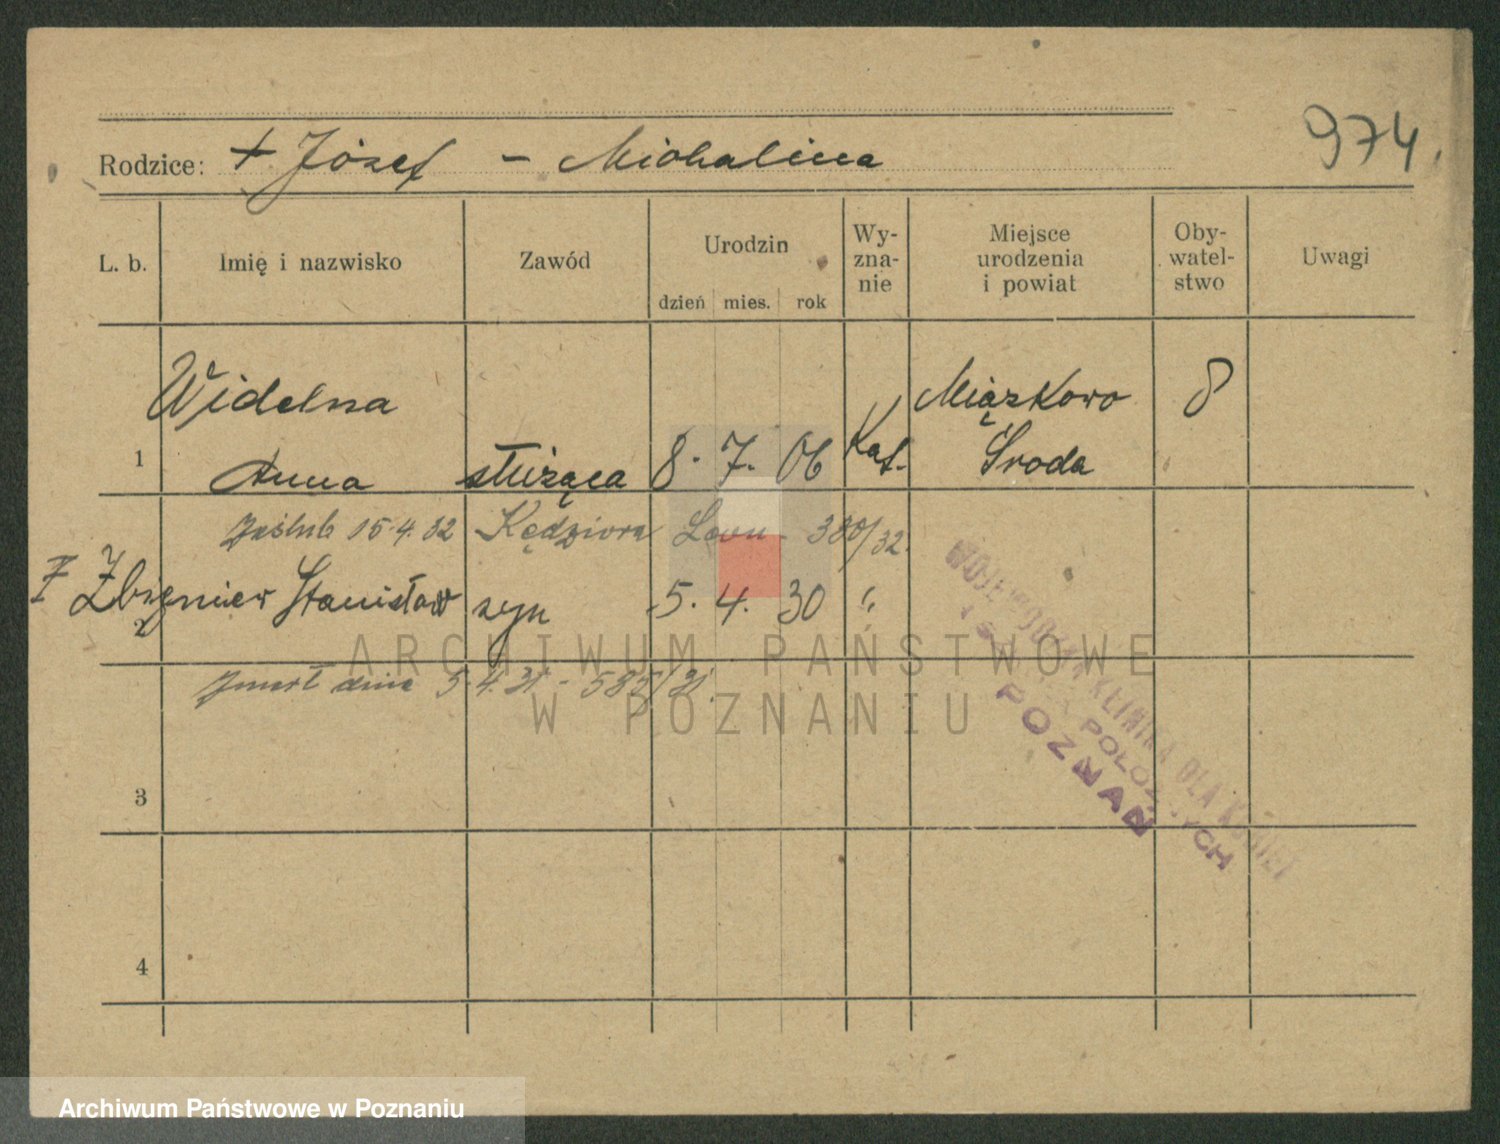 974.
Rodzice: + Józef - Michalina
L. b. Imię i nazwisko Zawód Urodzin dzień mies. rok Wy- zna- nie Miejsce urodzenia i powiat Oby- watel- stwo Uwagi
Widelna Miązkowo
1 Anna służąca 8. 7. 06 Kat. Środa
Zaślub 15.4.32 Kędziora 380/32.
Zbigniew Stanisław syn 5. 4. 30 "
2
zmarł dnia 5.4.31 -
3
4
WOJEWÓDZKA KLINIKA DLA KOBIET
POŁOŻNYCH
POZNAŃ
ARCHIWUM PAŃSTWOWE
W POZNANIU
Archiwum Państwowe w Poznaniu